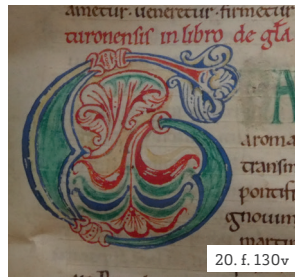 ametur. ueneretur. firmetur
turonensis in libro de gła
A
aroma
pontifi
gnouim
20. f. 130v